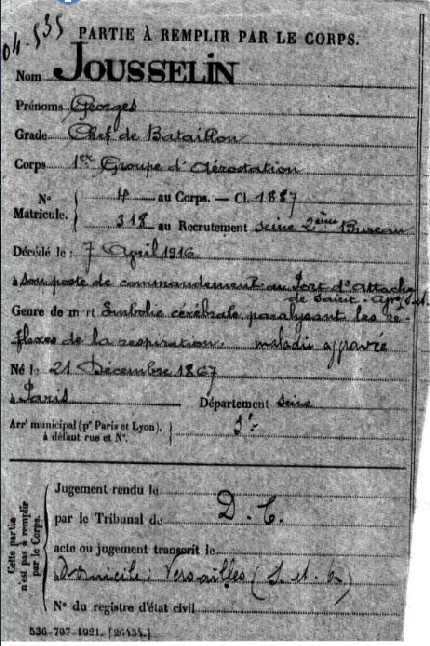 04.535
PARTIE À REMPLIR PAR LE CORPS.
Nom JOUSSELIN
Prénoms Georges
Grade Chef de Bataillon
Corps 1er Groupe d'Aérostation
N° Matricule. { 4 au Corps. — Cl. 1887
318 au Recrutement Seine 2ème Bureau
Décédé le : 7 Avril 1916
à son poste de commandement au Port d'Attache
de Saint-Cyr S.-et-O.
Genre de mort Embolie cérébrale paralysant les ré-
flexes de la respiration. maladie aggravée
Né le 21 Décembre 1867
à Paris Département Seine
Arrt municipal (pr Paris et Lyon), à défaut rue et N°. } 3e
Cette partie n'est pas à remplir par le Corps.
Jugement rendu le
par le Tribunal de D. C.
acte ou jugement transcrit le
Domicile : Versailles (S. et O)
N° du registre d'état civil
536-707-1921. [26434.]